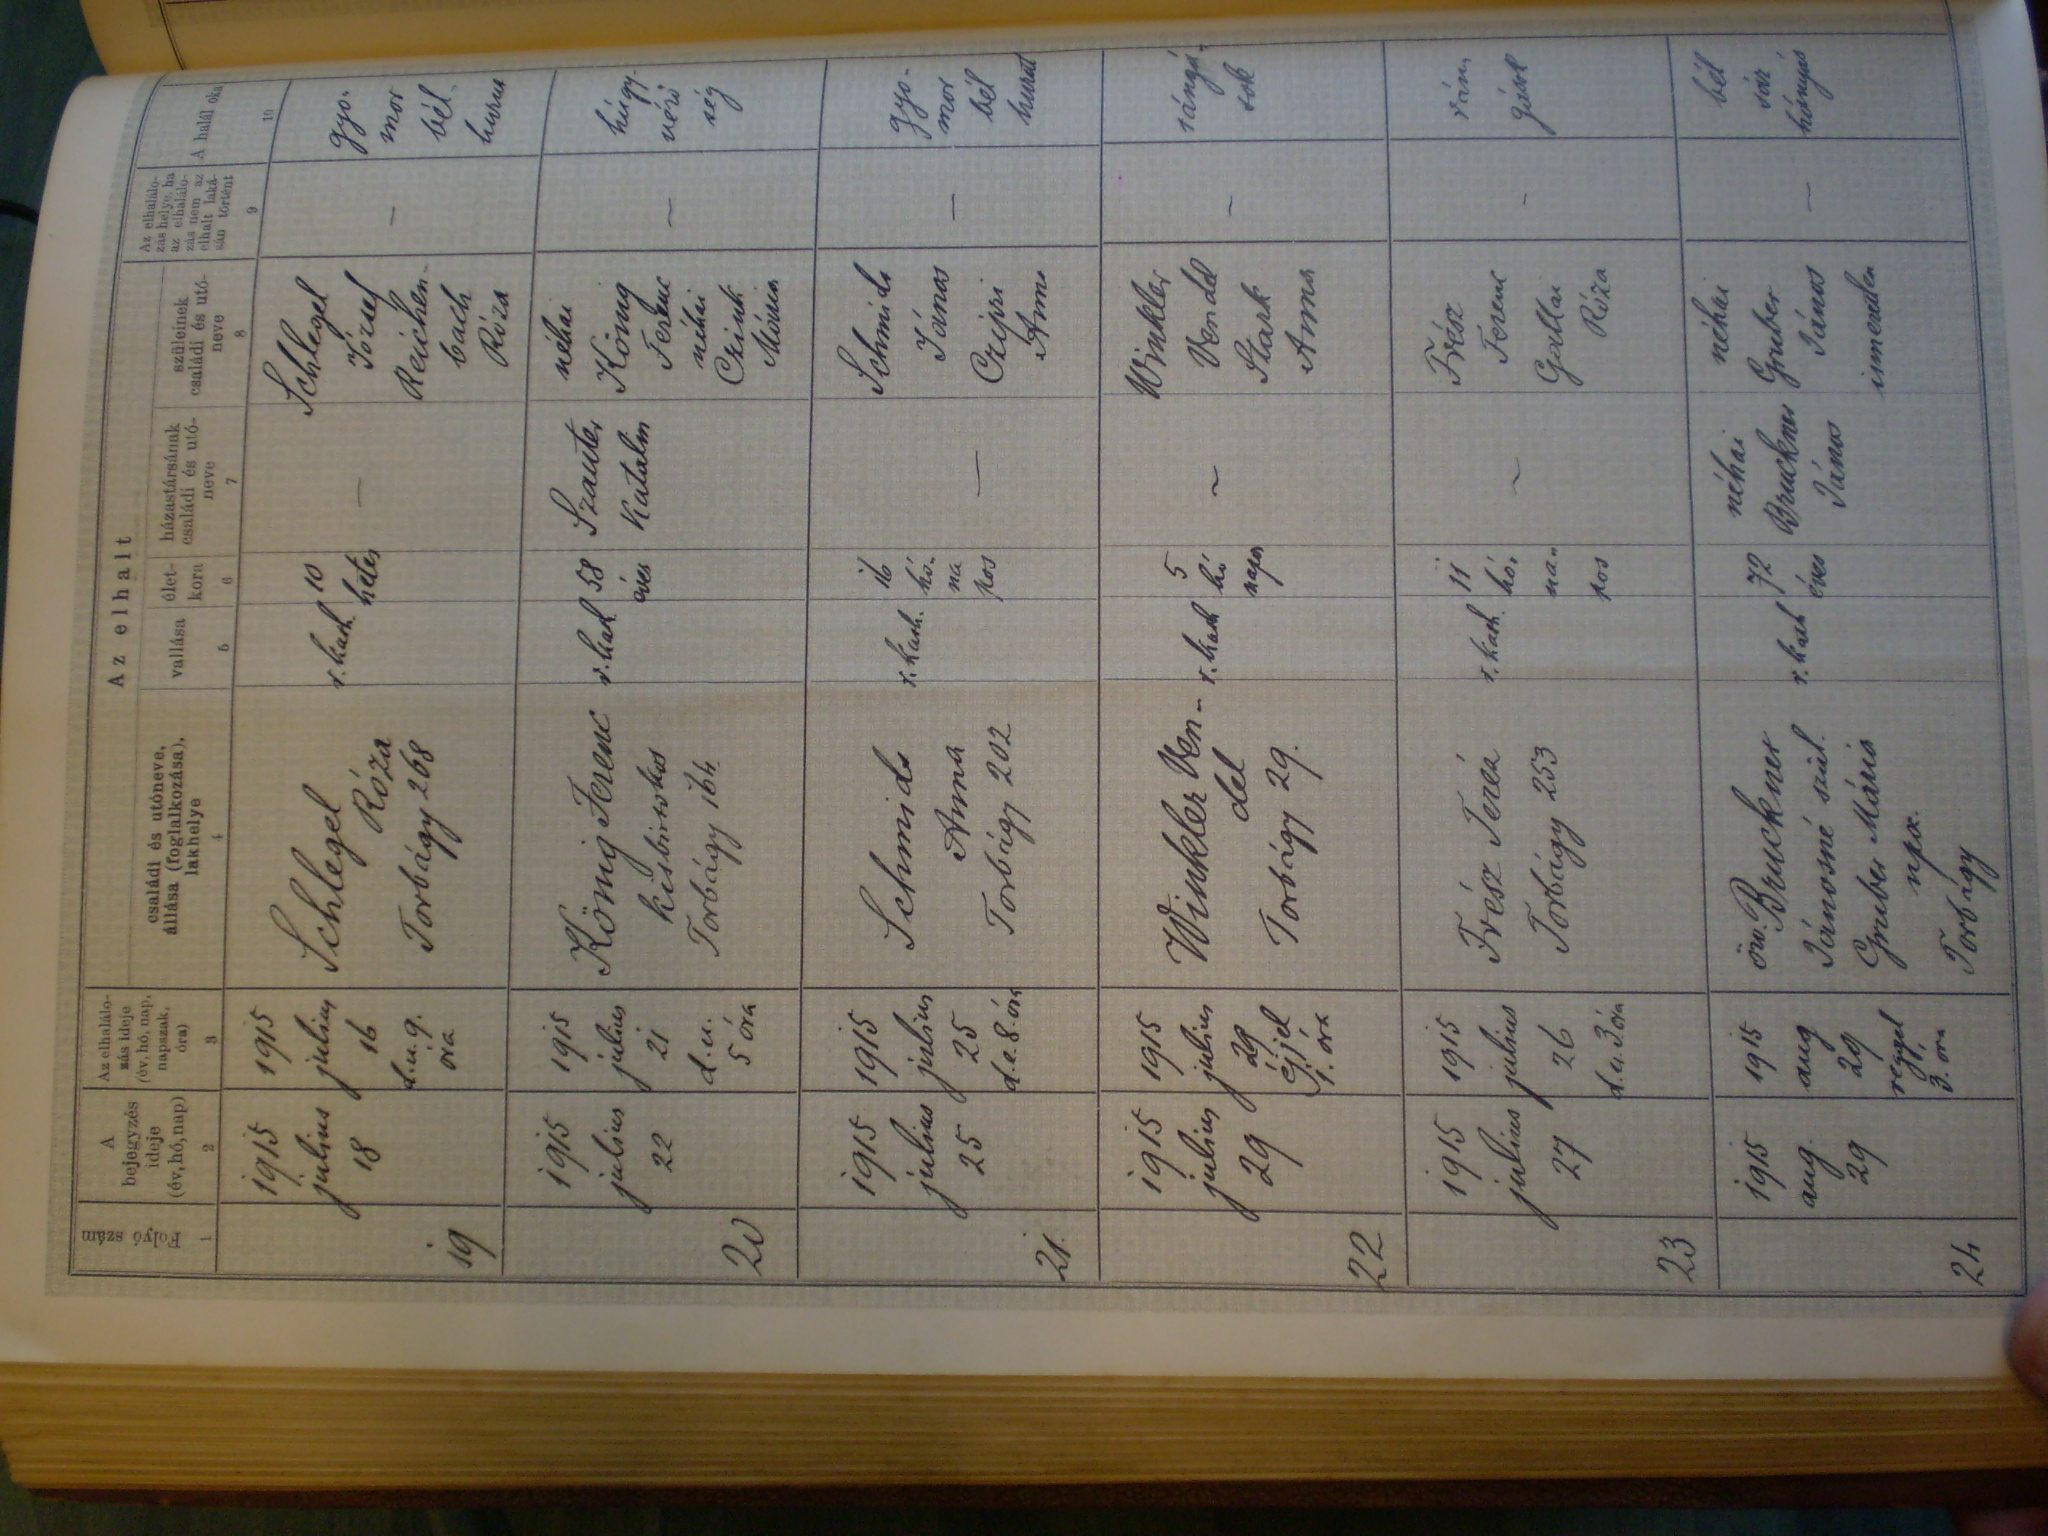 Az elhalt
Folyó szám
A
bejegyzés
ideje
(év, hó, nap)
Az elhalálo-
zás ideje
(év, hó, nap,
napszak,
óra)
családi és utóneve,
állása (foglalkozása),
lakhelye
vallása
élet-
kora
házastársának
családi és utó-
neve
szüleinek
családi és utó-
neve
Az elhalálo-
zás helye, ha
az elhalálo-
zás nem az
elhalt laká-
sán történt
A halál oka
1
2
3
4
5
6
7
8
9
10
19
1915
julius
18
1915
julius
16
d.u. 9.
óra
Schlegel
Róza
Torbágy 268
r. kath.
10
hetes
—
Schlegel
József
Reichen-
bach
Róza
—
gyo-
mor
bél-
hurut
20
1915
julius
22
1915
julius
21
d.u.
5 óra
König Ferenc
kisbirtokos
Torbágy 164
r. kath
58
éves
Szauter
Katalin
néhai
König
Ferenc
néhai
Czink
Mária
—
húgy-
vérű
ség
21.
1915
julius
25
1915
julius
25
d.e. 8. óra
Schmidt
Anna
Torbágy 202
r. kath.
16
hó-
na
pos
—
Schmidt
János
Czipri
Anna
—
gyo-
mor
bél
hurut
22
1915
julius
29
1915
julius
29
éjjel
1. óra
Winkler Ven-
del
Torbágy 29.
r. kath
5
hó
napos
~
Winkler
Vendel
Stark
Anna
~
rángá-
sok
23
1915
julius
27
1915
julius
26
d.u. 3 óra
Frész Teréz
Torbágy 253
r. kath.
11
hó-
na-
pos
~
Frész
Ferenc
Gallai
Róza
-
rán-
gások
24
1915
aug.
29
1915
aug
29
reggel
3. óra
özv. Bruckner
Jánosné szül.
Gruber Mária
npsz.
Torbágy
r. kath
72
éves
néhai
Bruckner
János
néhai
Gruber
János
ismeretlen
—
bél
sár
hányás